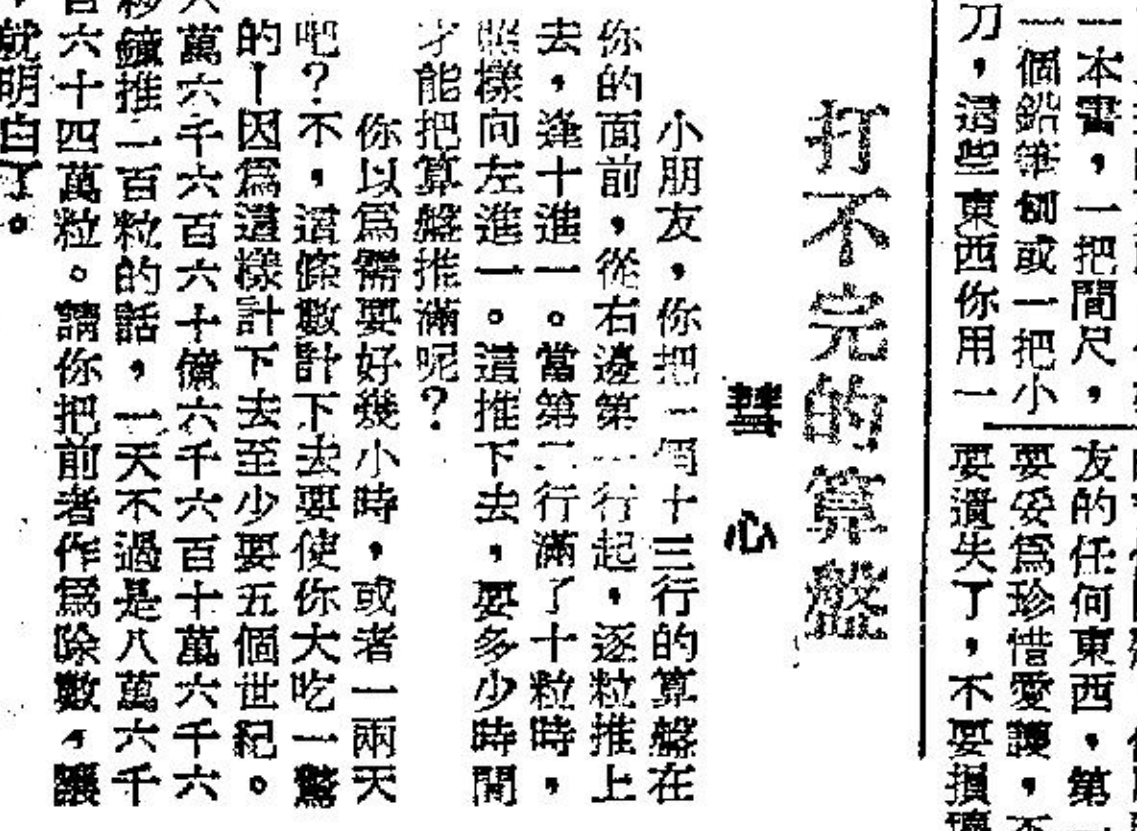 一本書，一把間尺，
一個鉛筆刨或一把小
刀，這些東西你用一
友的任何東西，第一
要妥爲珍惜愛護，不
要遺失了，不要損壞
打不完的算盤
彗心
小朋友，你把一個十三行的算盤在
你的面前，從右邊第一行起，逐粒推上
去，逢十進一。當第二行滿了十粒時，
照樣向左進一。這推下去，要多少時間
才能把算盤推滿呢？
你以爲需要好幾小時，或者一兩天
吧？不，這條數計下去要使你大吃一驚
的—因爲這樣計下去至少要五個世紀。
萬六千六百六十億六千六百十萬六千六
秒鐘推二百粒的話，一天不過是八萬六千
百六十四萬粒。請你把前者作爲除數，讓
，就明白了。